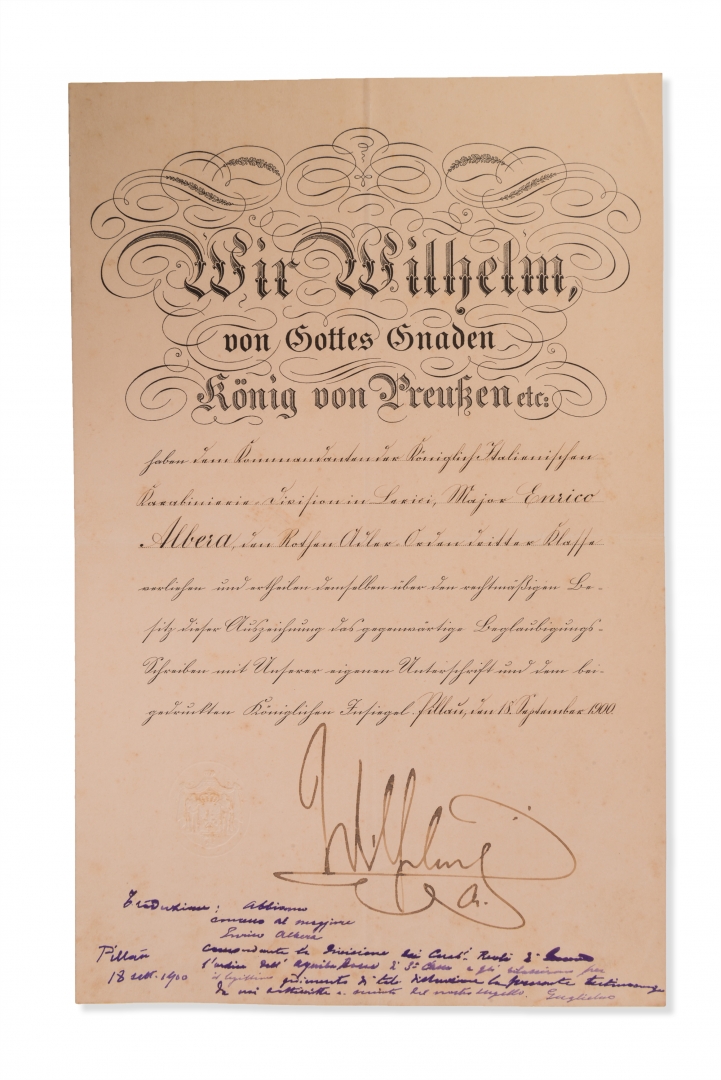 Wir Wilhelm,
von Gottes Gnaden
König von Preußen etc:
haben dem Kommandanten der Königlich Italienischen
Karabinierie-Division in Lerici, Major Enrico
Albera, den Rothen Adler-Orden dritter Klasse
verliehen und ertheilen demselben über den rechtmäßigen Be-
sitz dieser Auszeichnung das gegenwärtige Beglaubigungs-
Schreiben mit Unserer eigenen Unterschrift und dem bei-
gedruckten Königlichen Insiegel. Pillau, den 18. September 1900.
Wilhelm
R.
Traduzione: Abbiamo
concesso al maggiore
Enrico Albera
comandante la Divisione dei Reali
Pillau
18 sett. 1900
l'ordine dell' Aquila Rossa di 3ª classe e gli
il legittimo godimento di tale distinzione la presente
da noi sottoscritta e munita del nostro suggello. Guglielmo